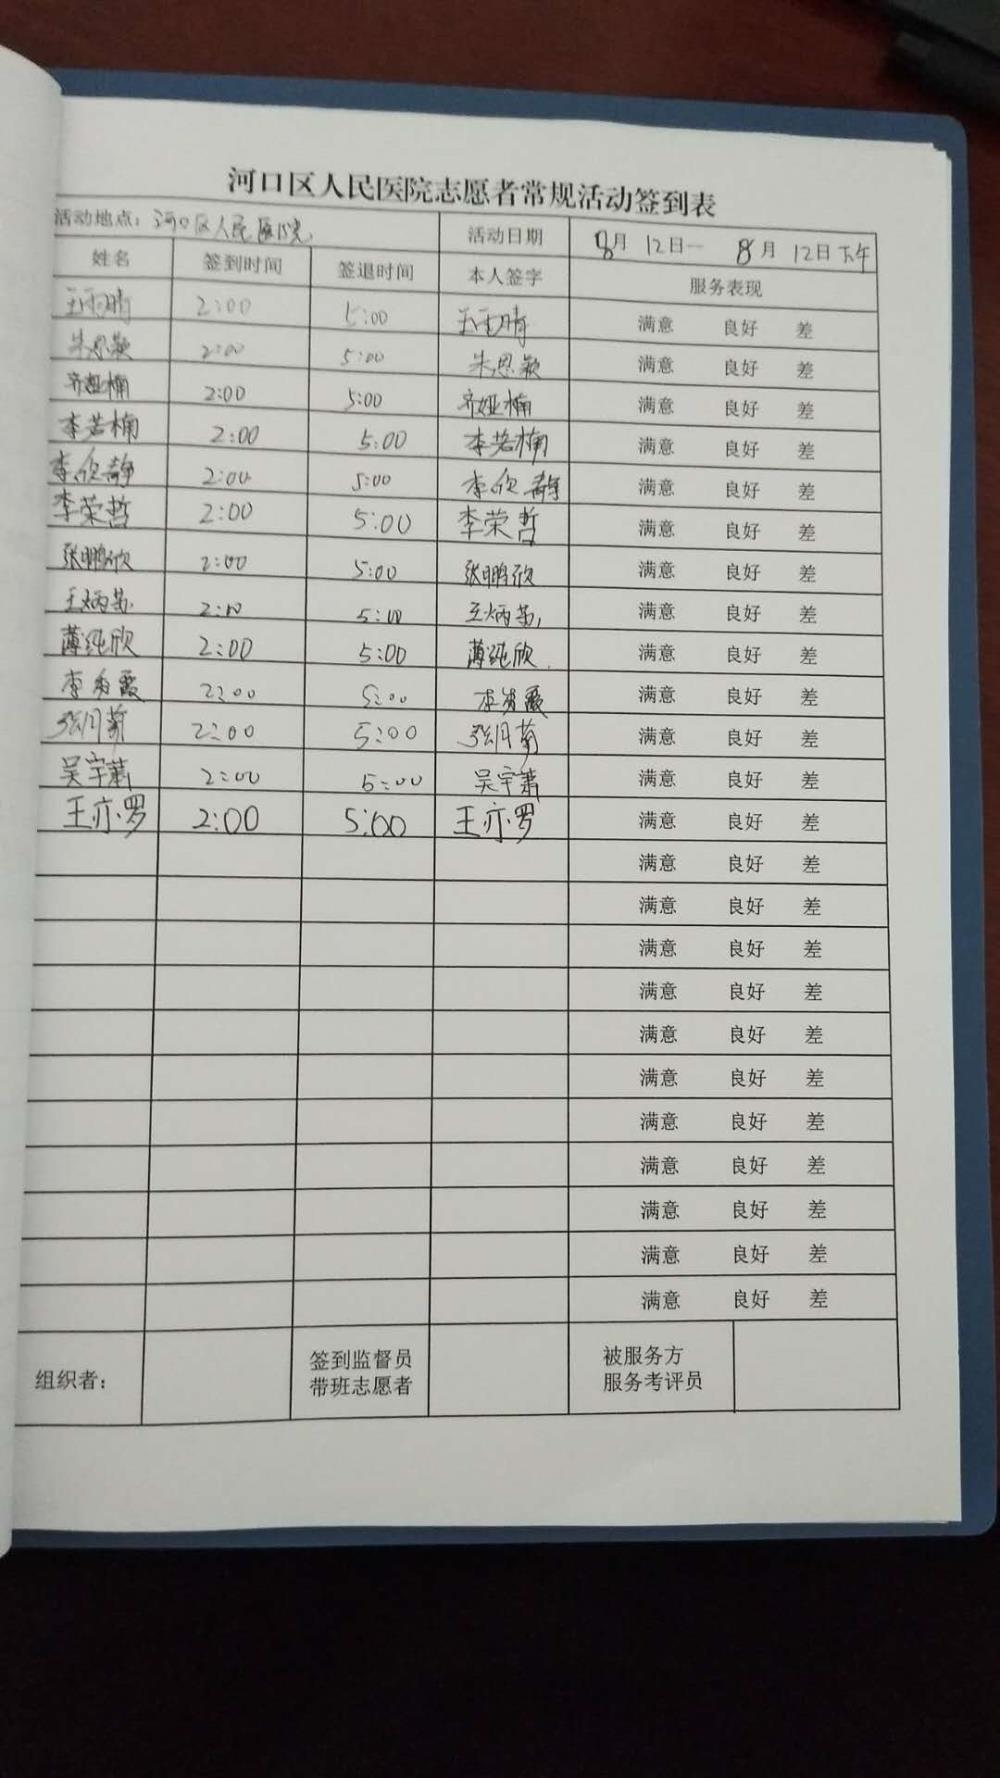 河口区人民医院志愿者常规活动签到表
活动地点：河口区人民医院 活动日期 8月 12日一 8月 12日下午
姓名 签到时间 签退时间 本人签字 服务表现
王雨晴 2:00 5:00 王雨晴 满意 良好 差
朱思颖 2:00 5:00 朱思颖 满意 良好 差
齐娅楠 2:00 5:00 齐娅楠 满意 良好 差
李若楠 2:00 5:00 李若楠 满意 良好 差
李欣静 2:00 5:00 李欣静 满意 良好 差
李荣哲 2:00 5:00 李荣哲 满意 良好 差
张鹏欣 2:00 5:00 张鹏欣 满意 良好 差
王炳 2:10 5:00 王炳 满意 良好 差
薄纯欣 2:00 5:00 薄纯欣 满意 良好 差
李秀霞 2:00 5:00 李秀霞 满意 良好 差
张月菊 2:00 5:00 张月菊 满意 良好 差
吴宇萧 2:00 5:00 吴宇萧 满意 良好 差
王亦罗 2:00 5:00 王亦罗 满意 良好 差
满意 良好 差
满意 良好 差
满意 良好 差
满意 良好 差
满意 良好 差
满意 良好 差
满意 良好 差
满意 良好 差
满意 良好 差
满意 良好 差
满意 良好 差
组织者： 签到监督员 被服务方
带班志愿者 服务考评员